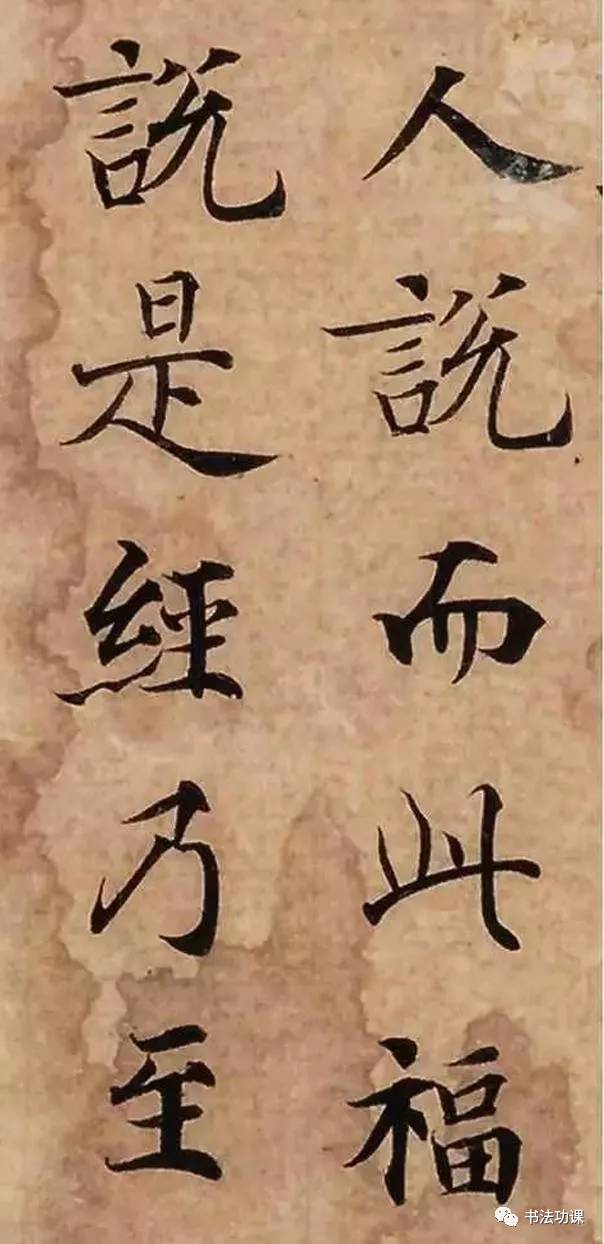 人說而此福
說是經乃至
书法功课